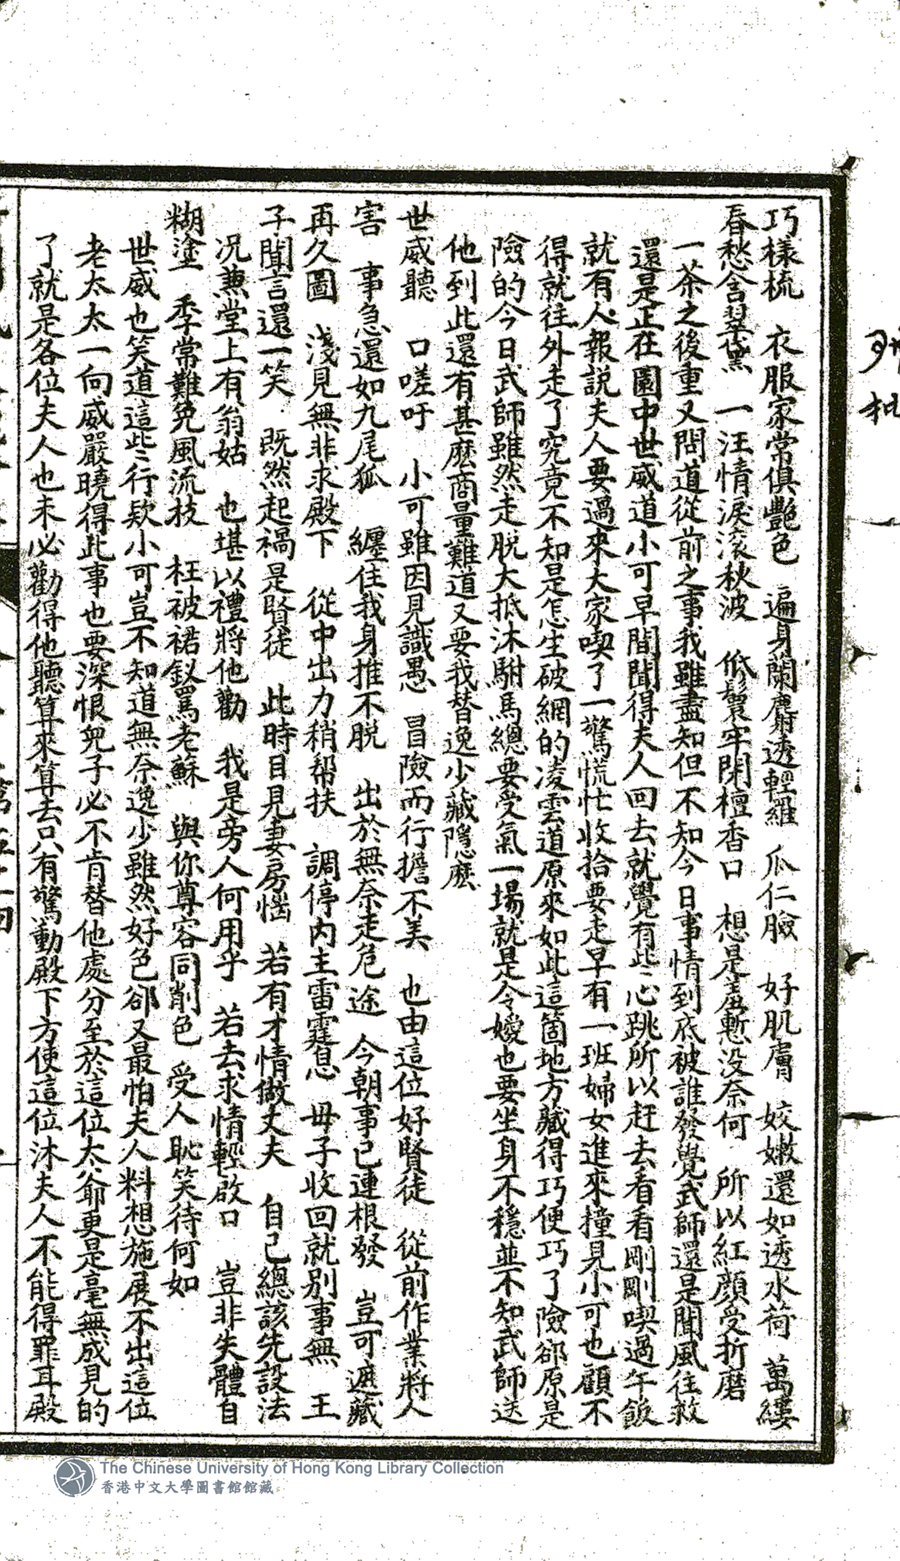 巧樣梳　衣服家常俱艷色　遍身蘭麝透輕羅　瓜仁臉　好肌膚　姣嫩還如透水荷　萬縷
春愁含翠黛　一汪情淚滾秋波　低鬟牢閉檀香口　想是羞慙没奈何　所以紅顏受折磨
一茶之後重又問道從前之事我雖盡知但不知今日事情到底被誰發覺武師還是聞風往救
還是正在園中世威道小可早間聞得夫人回去就覺有些心跳所以赶去看看剛剛喫過午飯
就有人報説夫人要過來大家喫了一驚慌忙收拾要走早有一班婦女進來撞見小可也顧不
得就往外走了究竟不知是怎生破網的凌雲道原來如此這箇地方藏得巧便巧了險郤原是
險的今日武師雖然走脱大抵沐駙馬總要受氣一場就是令嬡也要坐身不穩並不知武師送
他到此還有甚麽商量難道又要我替逸少藏隱麽
世威聽　口嗟吁　小可雖因見識愚　冒險而行擔不美　也由這位好賢徒　從前作業將人
害　事急還如九尾狐　纏住我身推不脱　出於無奈走危途　今朝事已連根發　豈可遮藏
再久圖　淺見無非求殿下　從中出力稍帮扶　調停内主雷霆息　毋子收回就别事無　王
子聞言還一笑　既然起禍是賢徒　此時目見妻房惱　若有才情做丈夫　自己總該先設法
况兼堂上有翁姑　也堪以禮將他勸　我是旁人何用乎　若去求情輕啟口　豈非失體自
糊塗　季常難免風流技　枉被裙釵罵老蘇　與你尊容同削色　受人恥笑待何如
世威也笑道這些行欵小可豈不知道無奈逸少雖然好色郤又最怕夫人料想施展不出這位
老太太一向威嚴曉得此事也要深恨兒子必不肯替他處分至於這位太爺更是毫無成見的
了就是各位夫人也未必勸得他聽算來算去只有驚動殿下方使這位沐夫人不能得罪耳殿